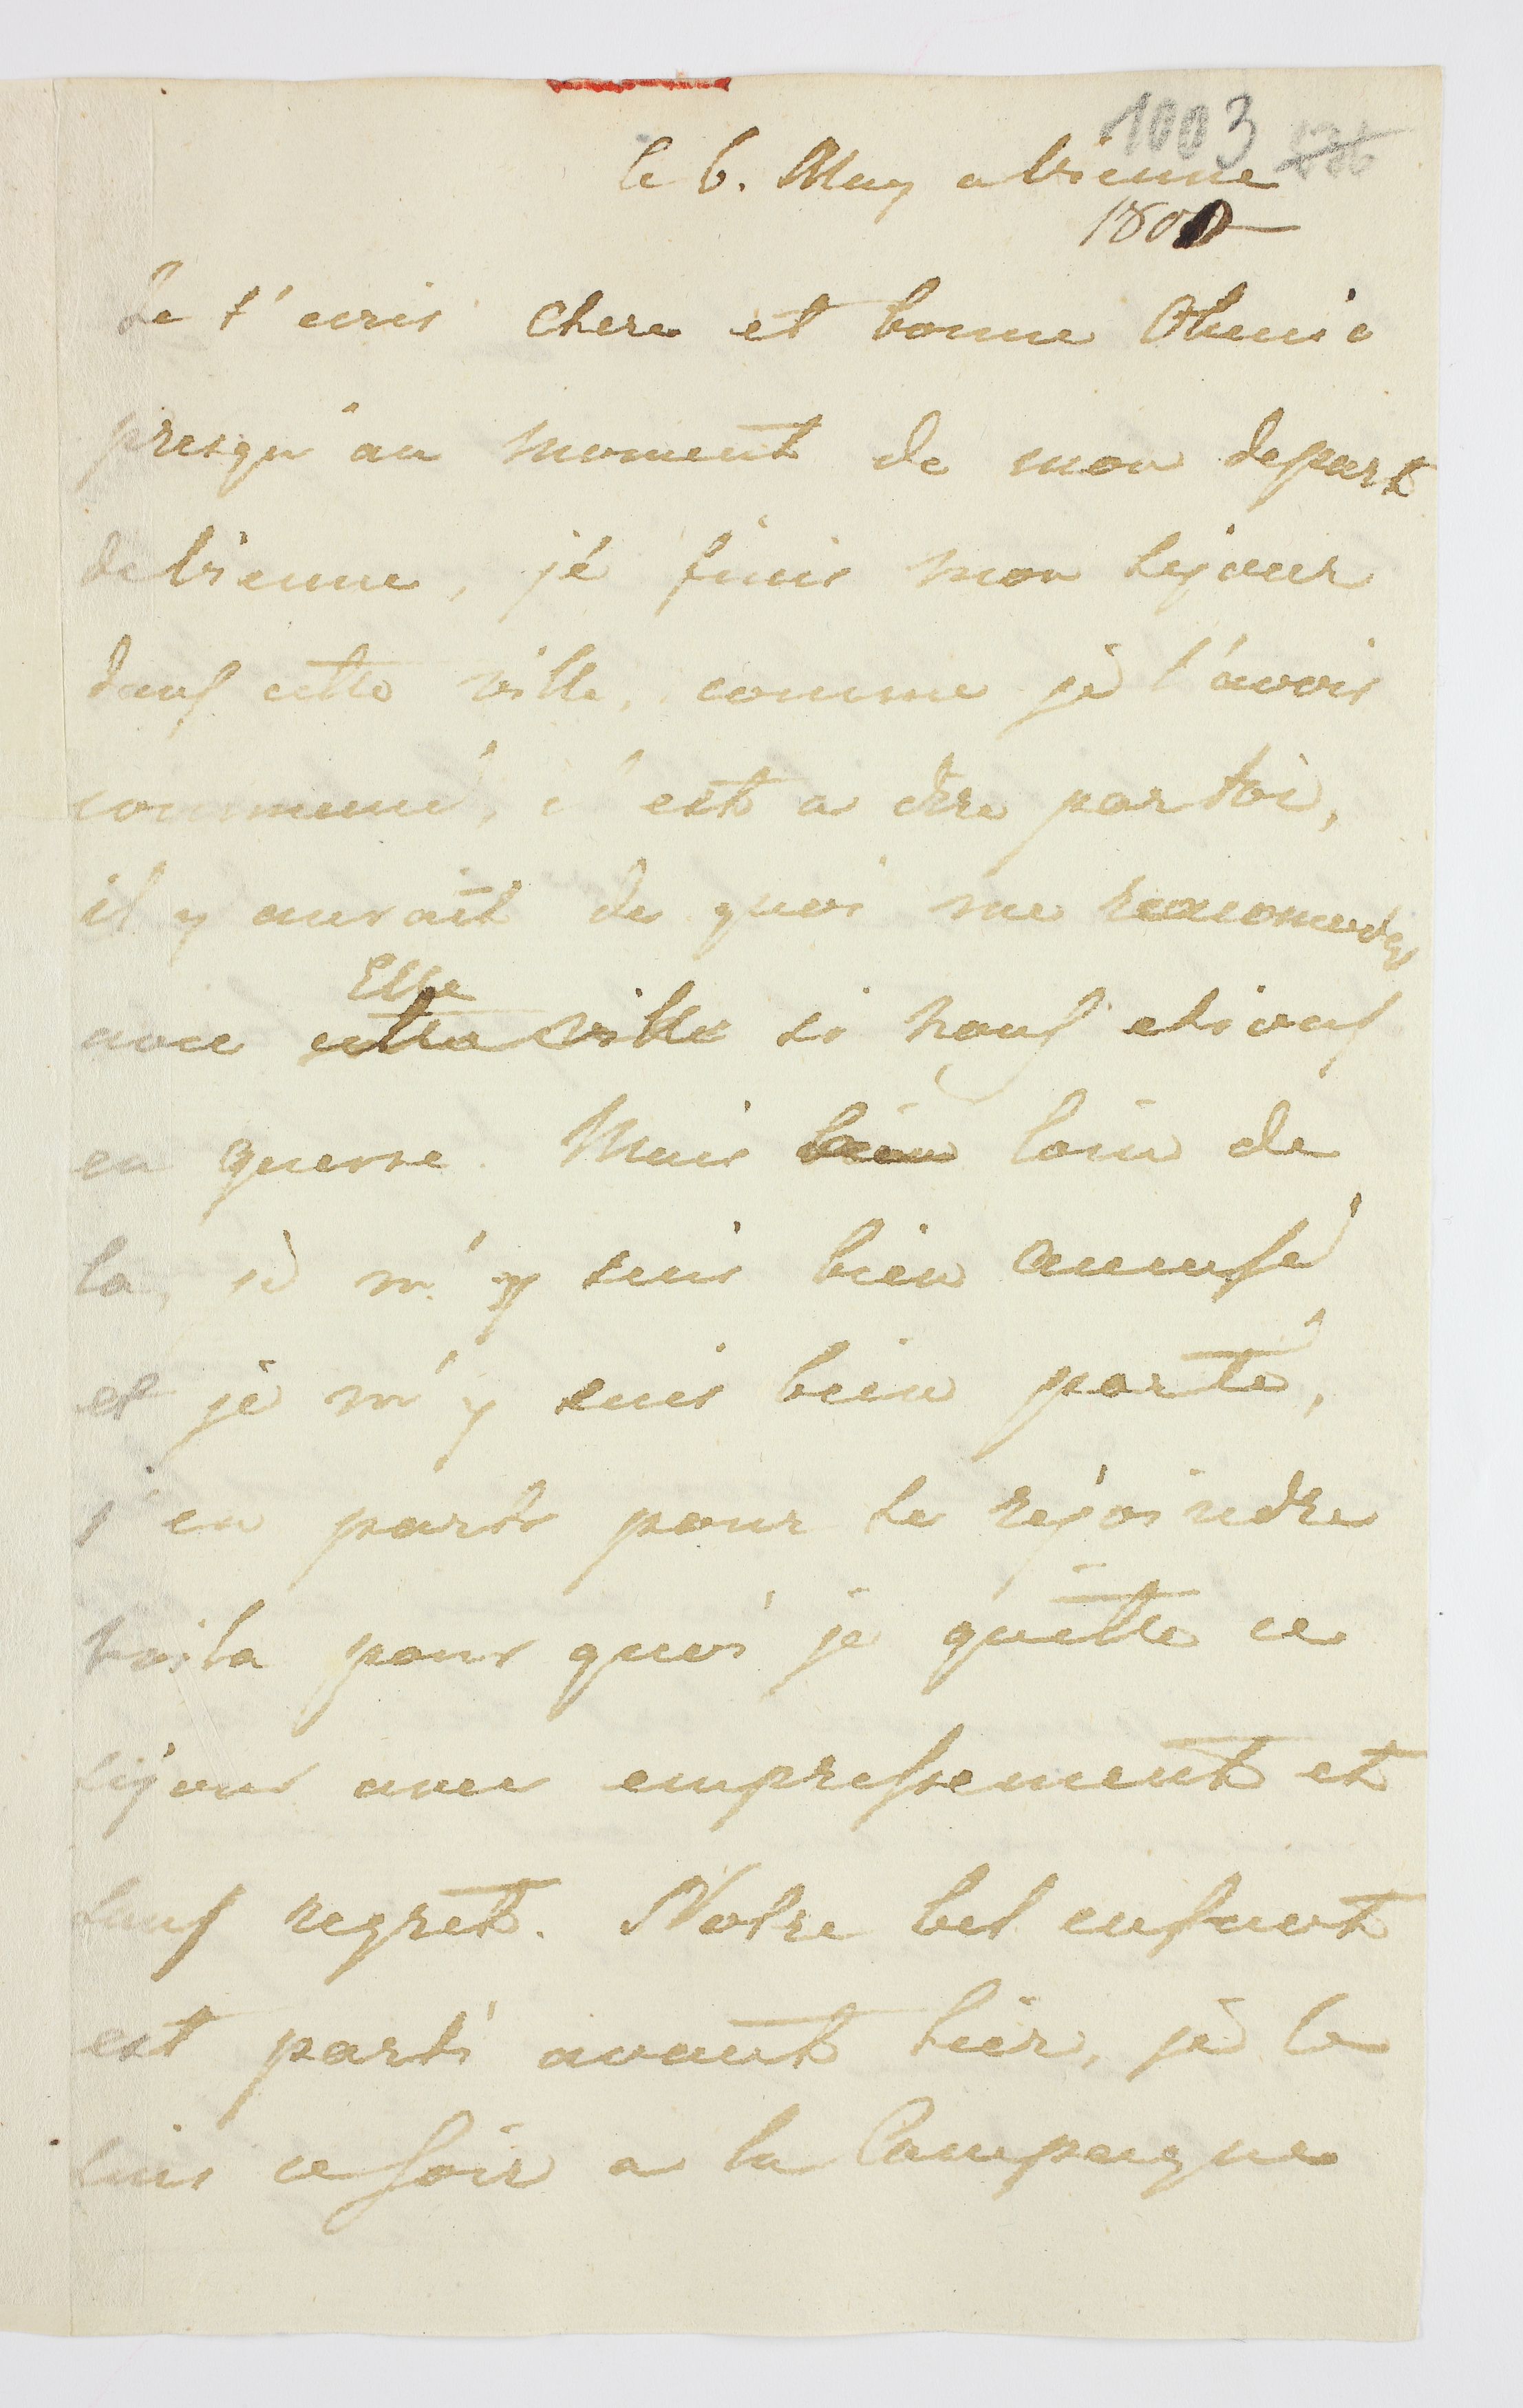 1003
le 6. May a Vienne
1800
Je t'ecris chere et bonne
presqu'au moment de mon depart
de Vienne, je finis mon sejour
dans cette ville, comme je l'avois
commencé, c'est a dire par toi,
il y auroit de quoi me racomoder
avec Elle cette ville si nous etions
en guerre. Mais bien loin de
la, je m'y suis bien amusé
et je m'y suis bien porté,
j'en parts pour te rejoindre
voila pour quoi je quitte ce
sejour avec empressement et
sans regret. Notre bel enfant
est parti avant hier, je le
suis ce soir a la Campagne